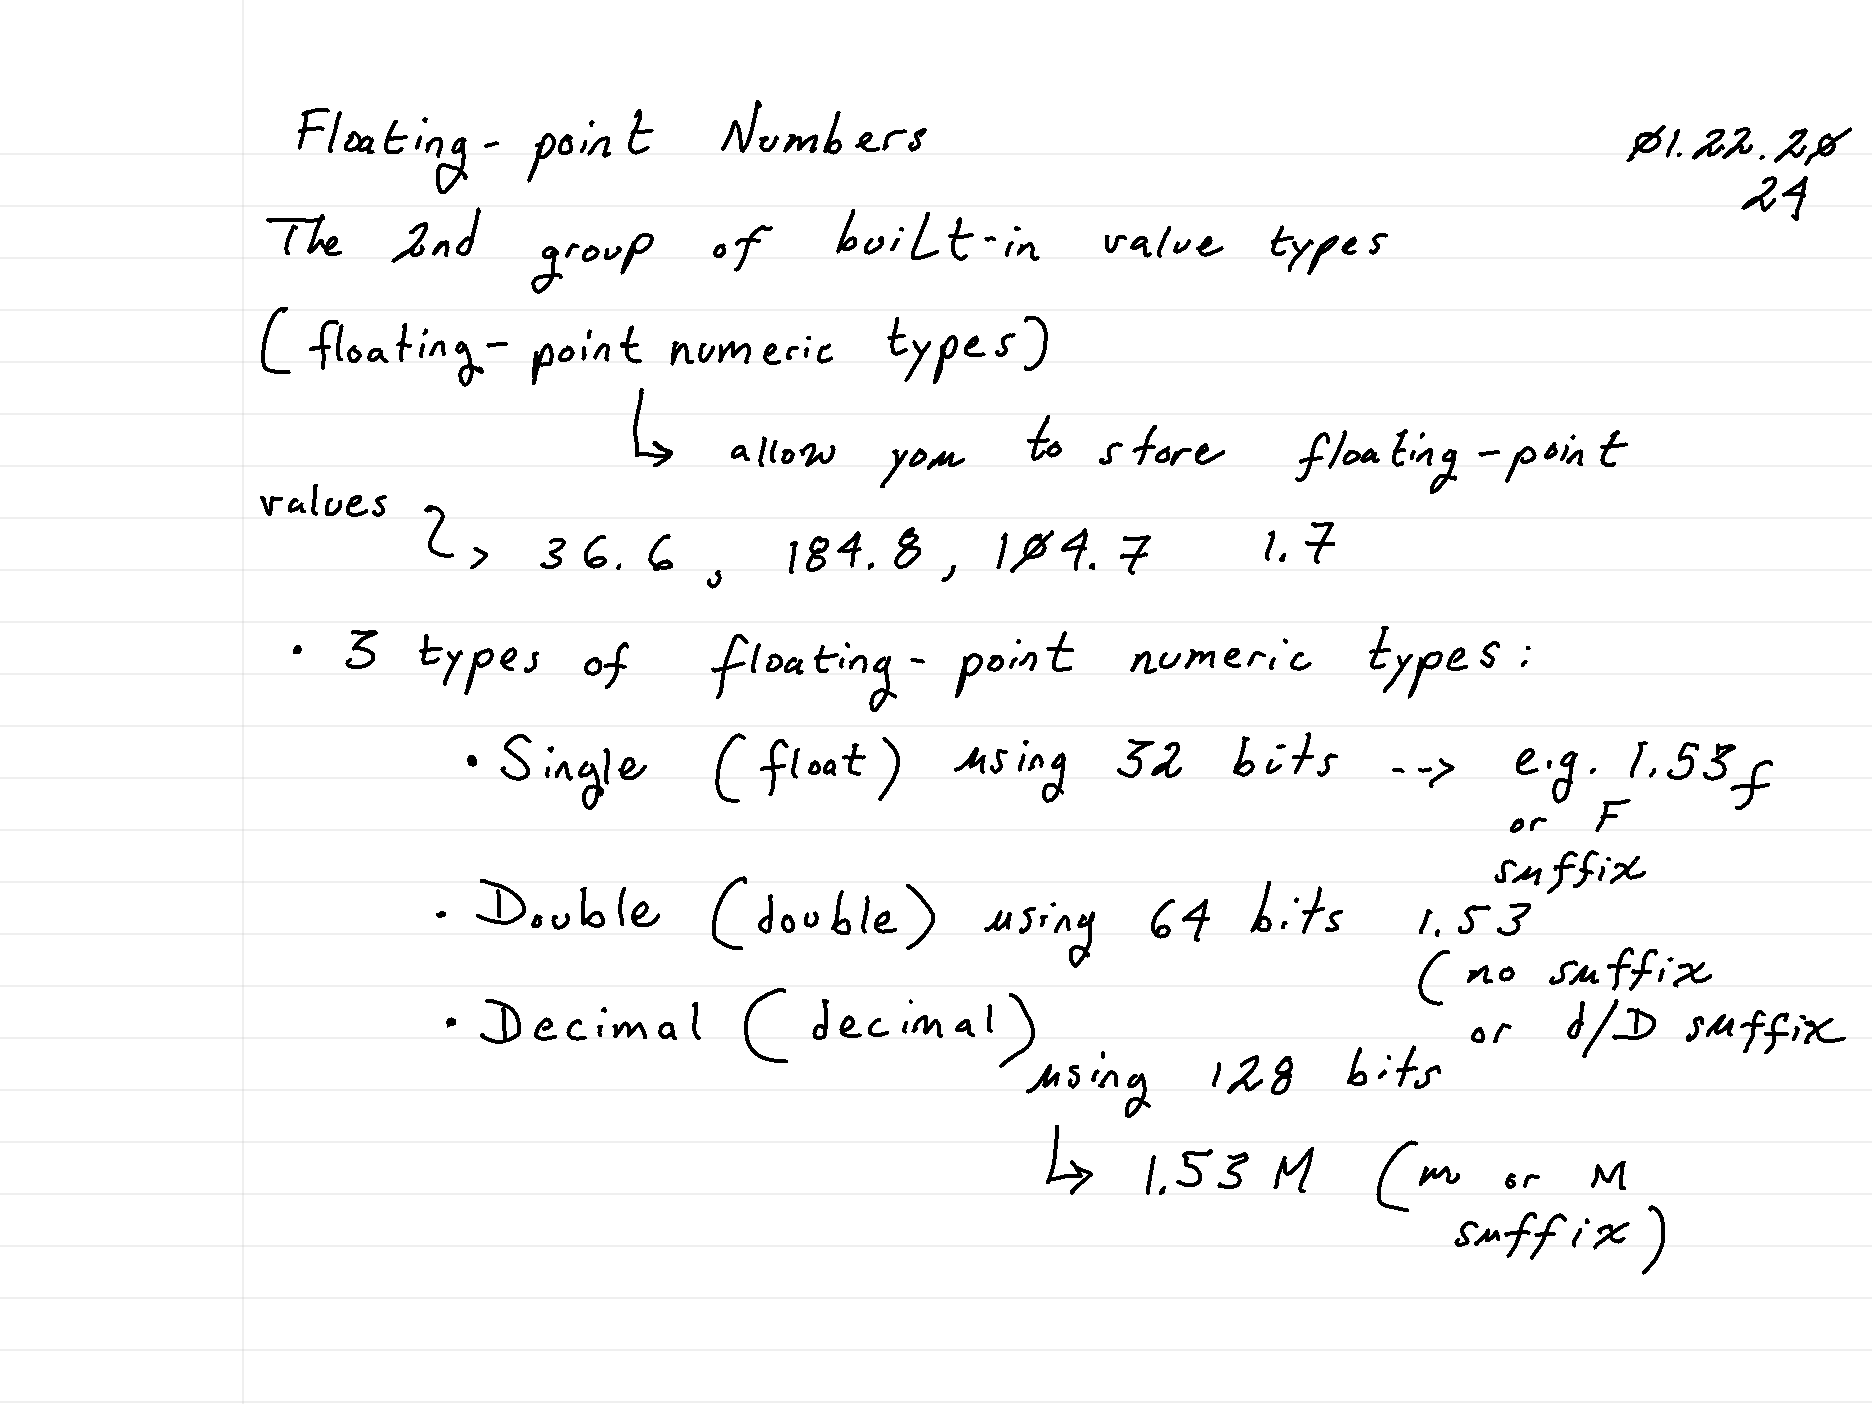 Floating-point Numbers
01.22.20
24
The 2nd group of built-in value types
(floating-point numeric types)
↳ allow you to store floating-point
values → 36.6, 184.8, 104.7 1.7
• 3 types of floating-point numeric types:
• Single (float) using 32 bits --> e.g. 1.53f
or F
suffix
• Double (double) using 64 bits 1.53
(no suffix
or d/D suffix
• Decimal (decimal)
using 128 bits
↳ 1.53M (m or M
suffix)